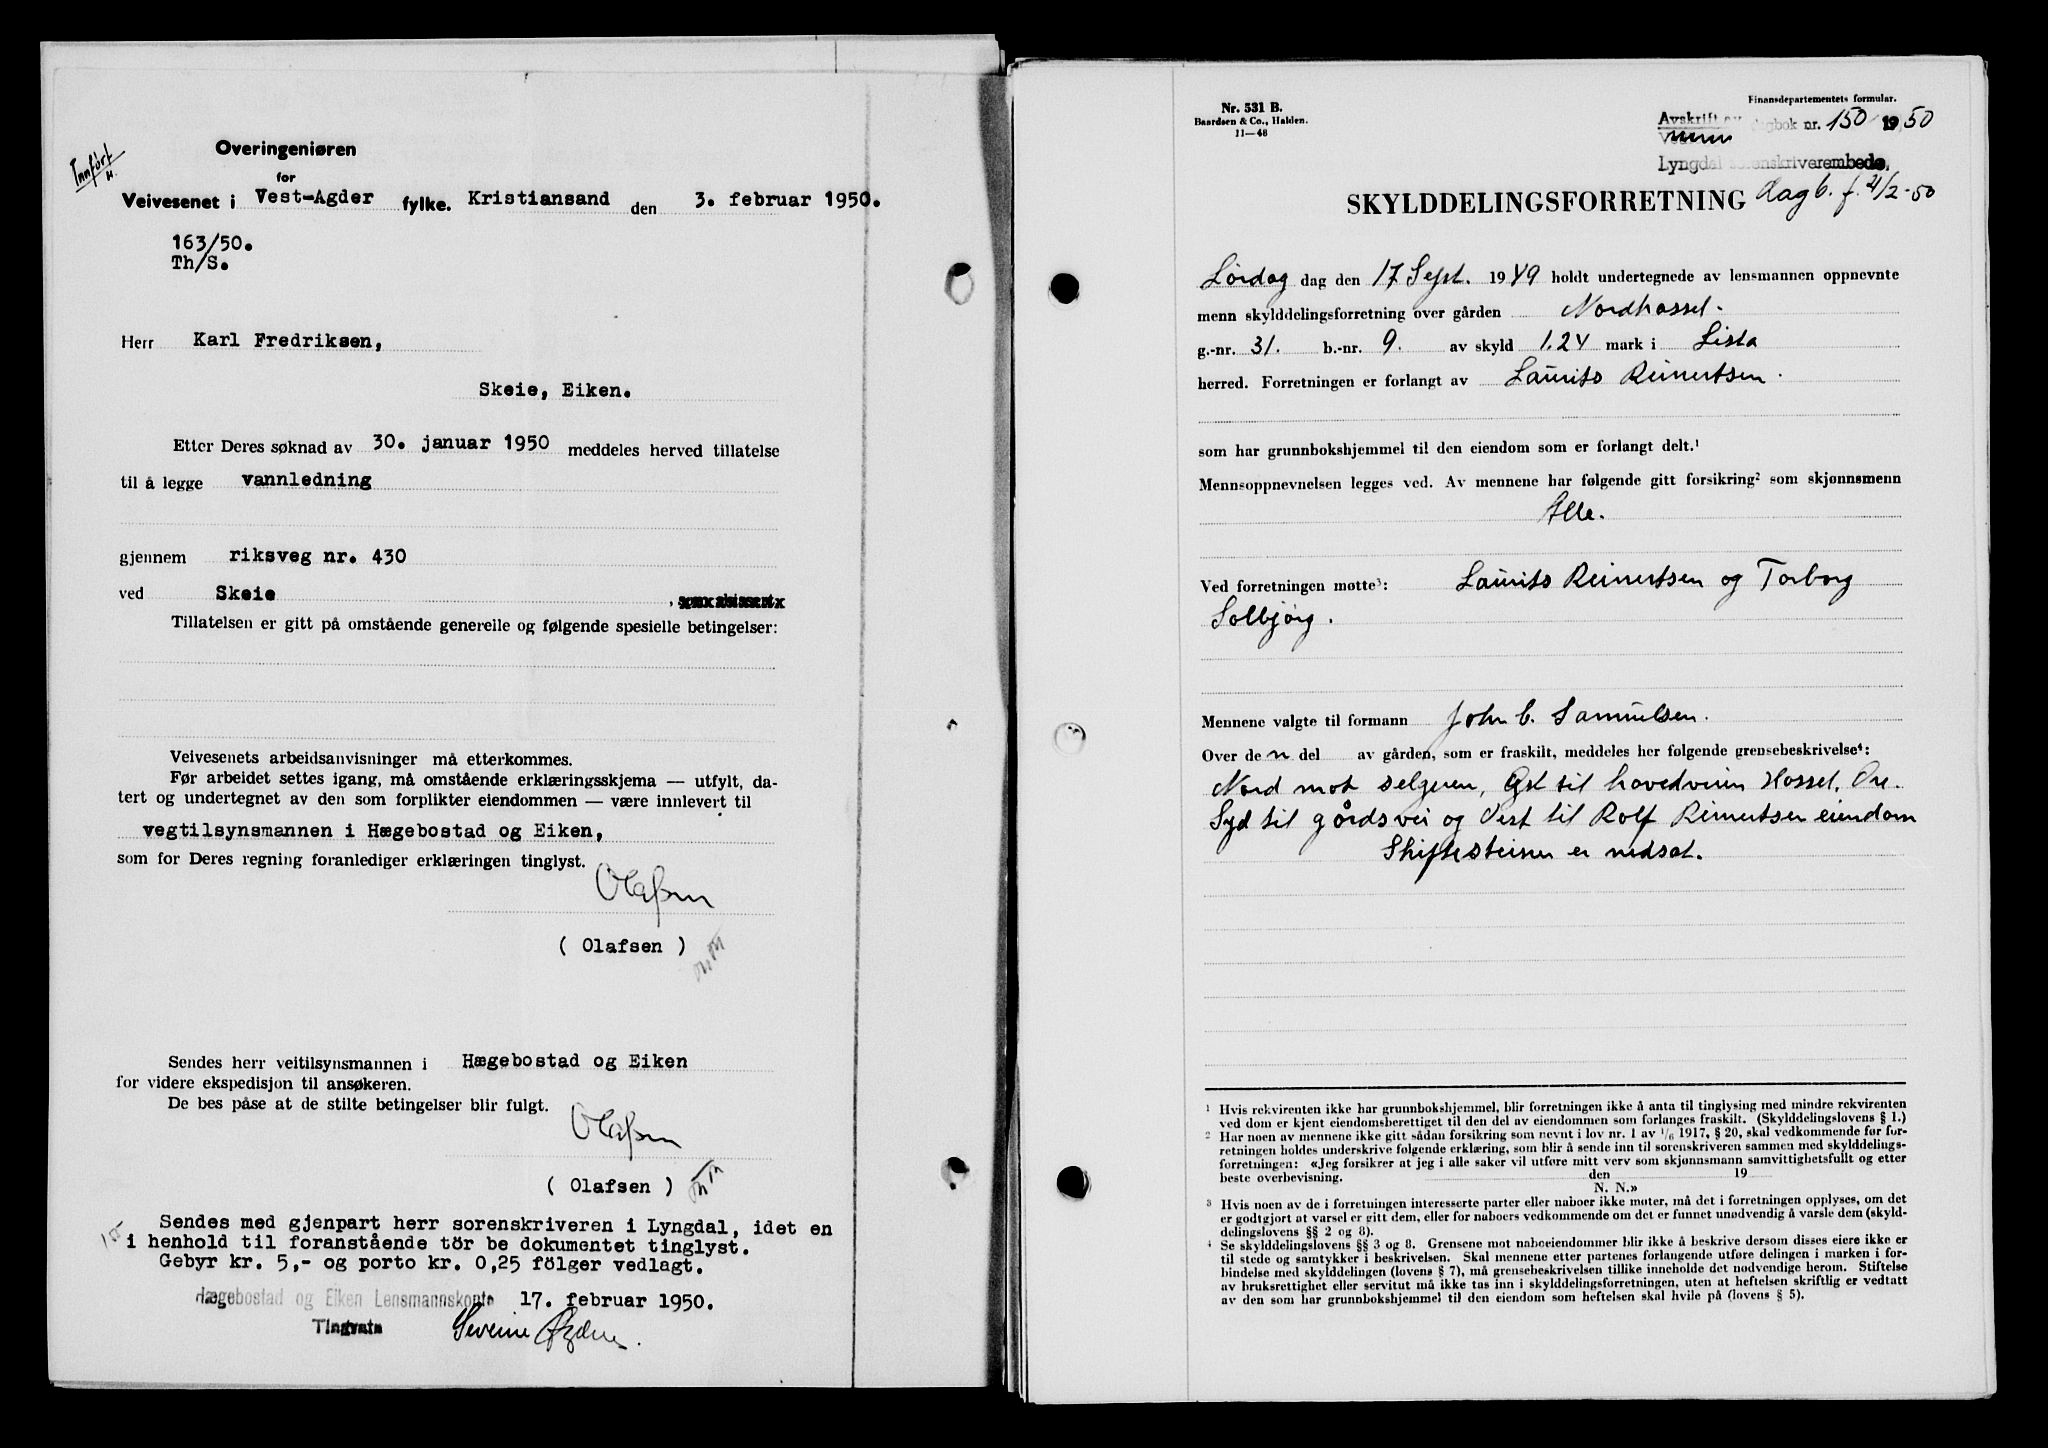 Innført
H.
Overingeniøren
for
Veivesenet i Vest-Agder fylke. Kristiansand den 3. februar 1950.
163/50.
Th/S.
Herr Karl Fredriksen,
Skeie, Eiken.
Etter Deres søknad av 30. januar 1950 meddeles herved tillatelse
til å legge vannledning
gjennem riksveg nr. 430
ved Skeie , som skissert
Tillatelsen er gitt på omstående generelle og følgende spesielle betingelser:
Veivesenets arbeidsanvisninger må etterkommes.
Før arbeidet settes igang, må omstående erklæringsskjema — utfylt, da-
tert og undertegnet av den som forplikter eiendommen — være innlevert til
vegtilsynsmannen i Hægebostad og Eiken,
som for Deres regning foranlediger erklæringen tinglyst.
Olafsen
( Olafsen )
Sendes herr veitilsynsmannen i Hægebostad og Eiken
for videre ekspedisjon til ansøkeren.
De bes påse at de stilte betingelser blir fulgt.
Olafsen
( Olafsen )
Sendes med gjenpart herr sorenskriveren i Lyngdal, idet en
i henhold til foranstående tör be dokumentet tinglyst.
Gebyr kr. 5,- og porto kr. 0,25 fölger vedlagt.
Hægebostad og Eiken Lensmannskontor 17. februar 1950.
Tingvatn
Nr. 531 B.
Baardsen & Co., Halden.
11—48
Finansdepartementets formular.
Avskrift av dagbok nr. 150 1950
Lyngdal sorenskriverembede.
SKYLDDELINGSFORRETNING dagb. f. 21/2-50
Lördag dag den 17 Sept. 1949 holdt undertegnede av lensmannen oppnevnte
menn skylddelingsforretning over gården Nordhassel.
g.-nr. 31. b.-nr. 9. av skyld 1.24 mark i Lista
herred. Forretningen er forlangt av Laurits Reinertsen.
som har grunnbokshjemmel til den eiendom som er forlangt delt.¹
Mennsoppnevnelsen legges ved. Av mennene har følgende gitt forsikring² som skjønnsmenn
Alle.
Ved forretningen møtte³: Laurits Reinertsen og Torborg
Solbjörg.
Mennene valgte til formann John C. Samuelsen.
Over de n del av gården, som er fraskilt, meddeles her følgende grensebeskrivelse⁴:
Nord mot selgeren, Øst til hovedveien Hassel, Ore.
Syd til gårdsvei og Vest til Rolf Reinertsen eiendom
Skiftesteiner er nedsat.
¹ Hvis rekvirenten ikke har grunnbokshjemmel, blir forretningen ikke å anta til tinglysing med mindre rekvirenten
ved dom er kjent eiendomsberettiget til den del av eiendommen som forlanges fraskilt. (Skylddelingslovens § 1.)
² Har noen av mennene ikke gitt sådan forsikring som nevnt i lov nr. 1 av 1/6 1917, § 20, skal vedkommende før for-
retningen holdes underskrive følgende erklæring, som blir å sende inn til sorenskriveren sammen med skylddelings-
forretningen: «Jeg forsikrer at jeg i alle saker vil utføre mitt verv som skjønnsmann samvittighetsfullt og etter
beste overbevisning. den 19
N. N.»
³ Hvis noen av de i forretningen interesserte parter eller naboer ikke møter, må det i forretningen opplyses, om det
er godtgjort at varsel er gitt dem, eller for naboers vedkommende om det er funnet unødvendig å varsle dem (skyld-
delingslovens §§ 2 og 8).
⁴ Se skylddelingslovens §§ 3 og 8. Grensene mot naboeiendommer blir ikke å beskrive dersom disses eiere ikke er
til stede og samtykker i beskrivelsen. Skal mennene etter partenes forlangende utføre delingen i marken i for-
bindelse med skylddelingen (lovens § 7), må grensebeskrivelsen tillike inneholde det nødvendige herom. Stiftelse
av bruksrettighet eller servitut må ikke tas inn i skylddelingsforretningen, uten at heftelsen skriftlig er vedtatt
av den som har grunnbokshjemmel til den eiendom som heftelsen skal hvile på (lovens § 5).